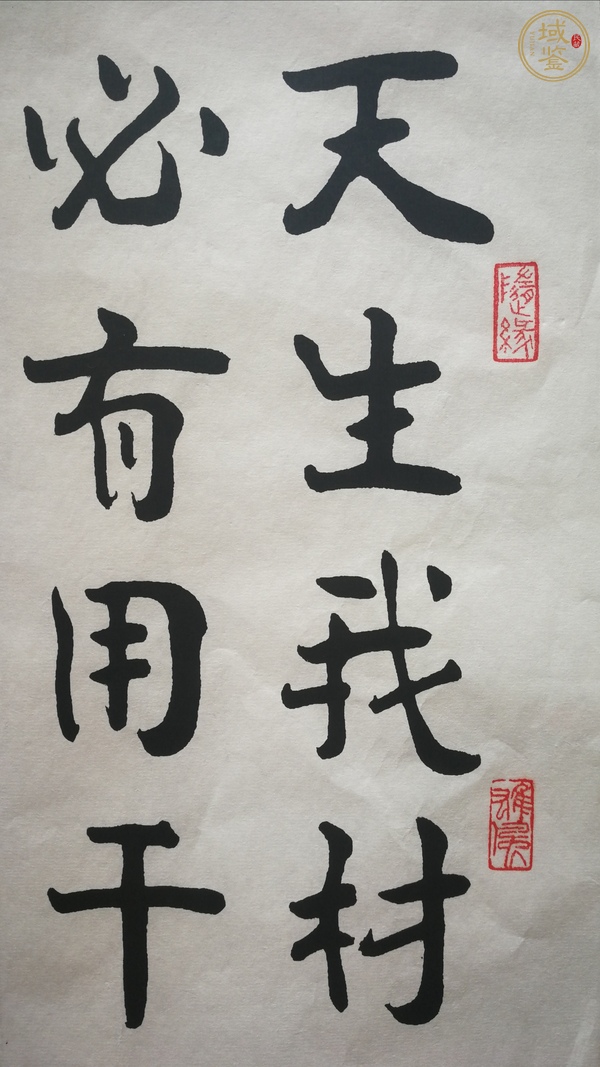 天生我材
必有用干
隨緣
域鉴